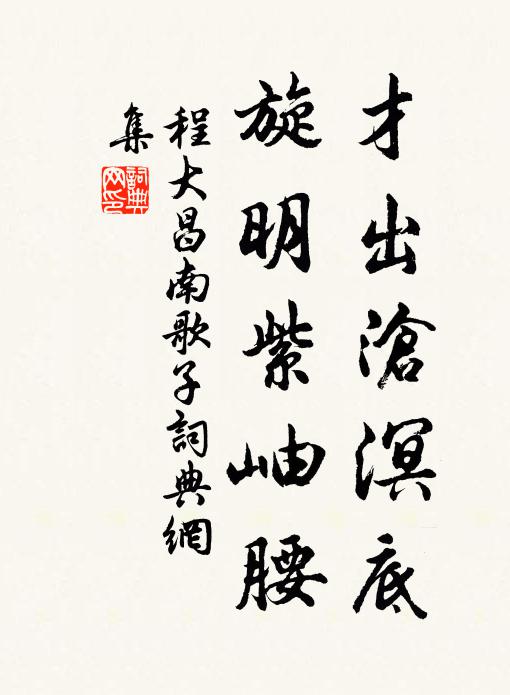 才出滄溟底
旋明紫岫腰
程大昌南歌子詞典網
集
詞典
网印